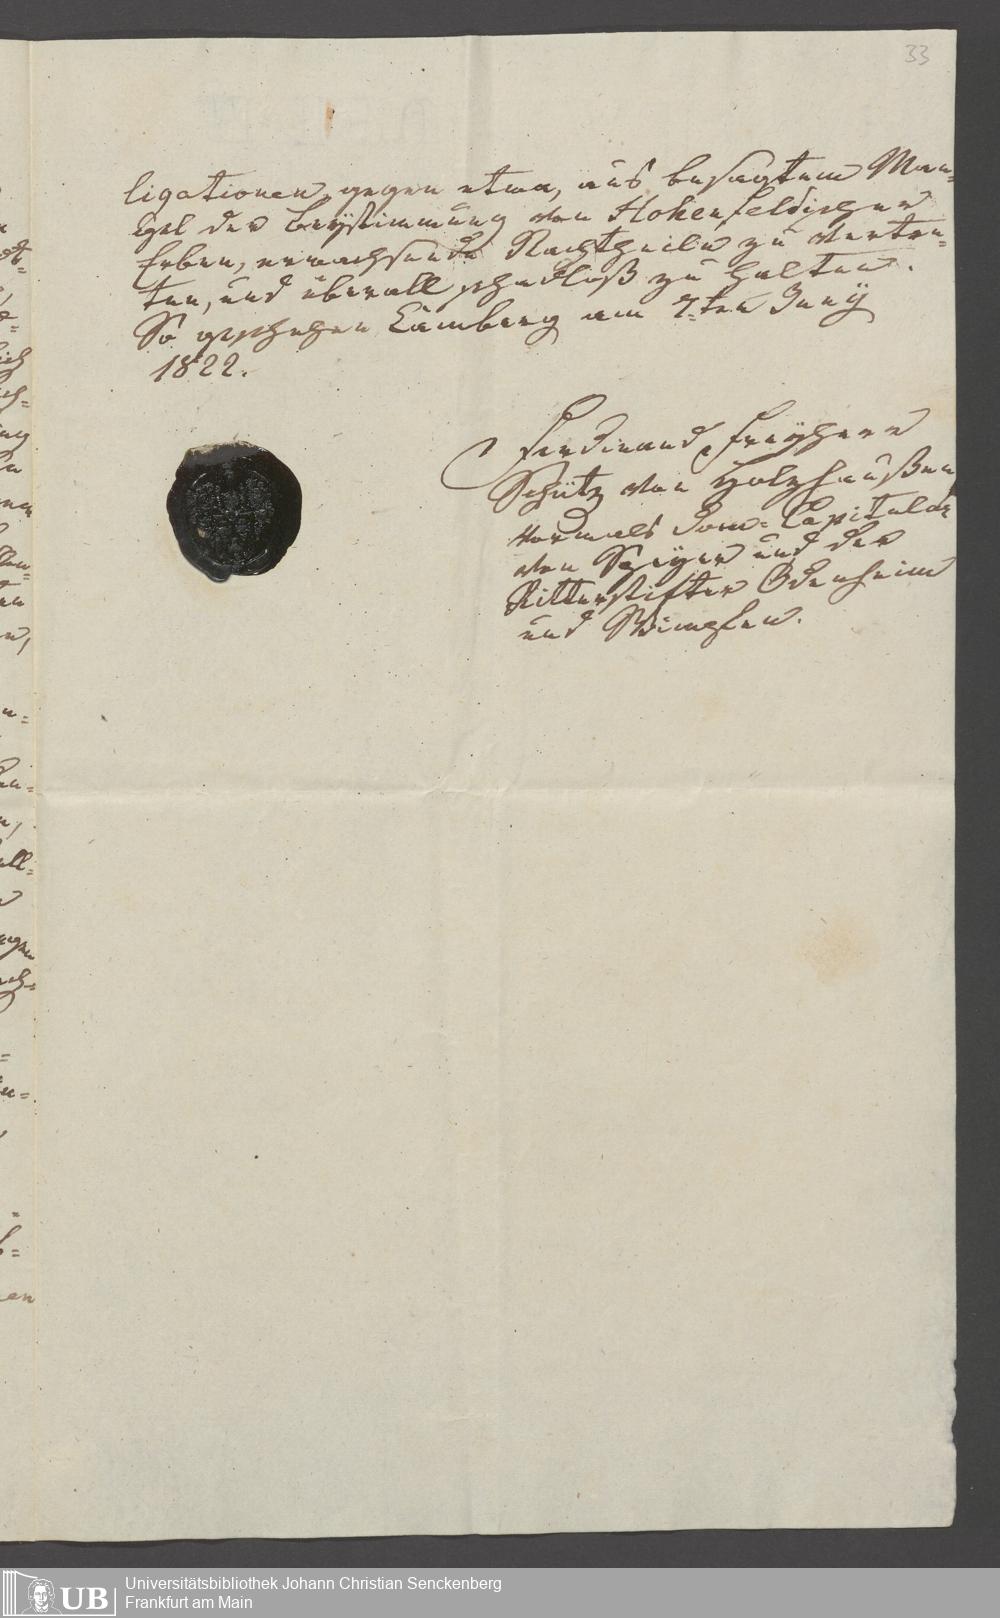 33
ligationen, gegen etwa, aus besagtem Man-
gel der Beystimmung von Hohenfeldischer
Erben, erwachsende Nachtheile zu vertre-
ten, und überall schadloß zu halten.
So geschehen Camberg am 7.ten Juny
1822.
Ferdinand, Freyherr
Schütz von Holzhaußen
vormals Dom-Capitular
von Speyer und der
Ritterstifter Odenheim
und Wimpfen.
UB
Universitätsbibliothek Johann Christian Senckenberg
Frankfurt am Main